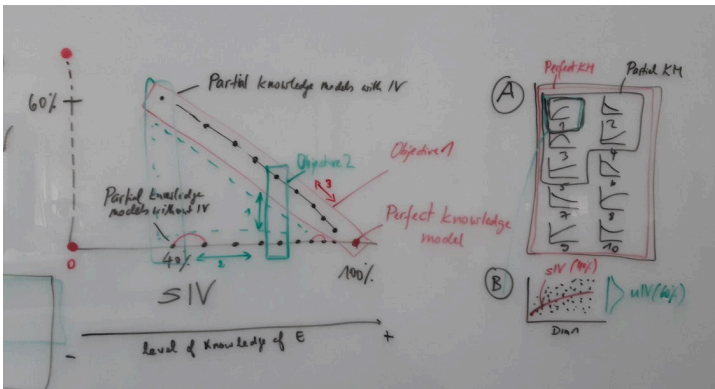 Partial knowledge models with IV
60%
Objective 1
Objective 2
R3
1
Partial knowledge
models without IV
Perfect knowledge
model
0
40%
2
100%
SIV
- level of knowledge of E +
A
Perfect KM
Partial KM
1
2
3
4
5
6
7
8
9
10
B
sIV (40%)
uIV (60%)
Dim 1